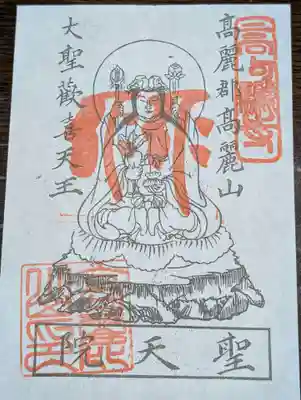 高麗郡高麗山
大聖歡喜天王
聖天院